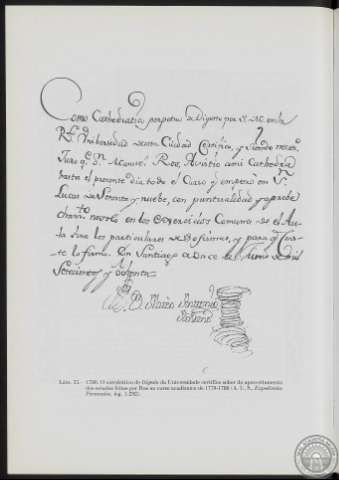 Como Cathedratico perpetuo de Digesto por S. M. en la
Rl. Universidad de esta Ciudad Certifico, y siendo necesº
Juro qe. Dn. Manuel Ros, Asistio ami Cathedra
hasta el presente dia todo el Curso qe. empezó en Sn.
Lucas de Setenta y nuebe, con puntualidad y aprobe
chamto. no solo en los Exercicios Comunes de el Au
la sino los particulares de y para qe. Cons
te lo firmo. En Santiago a Doce de Junio de mil
Setecientos y Ochenta
Lám. 25.— 1780. O catedrático de Dixesto da Universidade certifica sobor do aproveitamento
dos estudos feitos por Ros no curso académico de 1779-1780 (A. U. S., Expedientes
Personales, leg. 1.292).